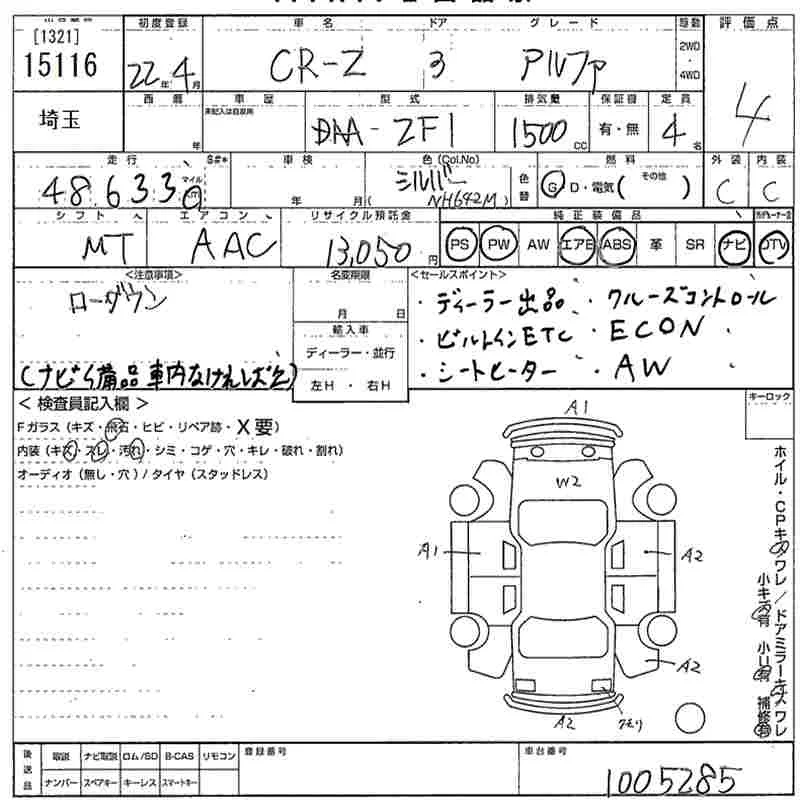 [1321]
初度登録 車名 ドア グレード 駆動 評価点
15116 22年4月 CR-Z 3 アルファ 2WD・4WD 4
埼玉 西暦 車歴 型式 排気量 保証書 定員
年 未記入は自家用 DAA-ZF1 1500CC 有・無 4名
走行 S#* 車検 色(Col.No) 燃料 外装 内装
48,633 マイル 年 月 シルバー (NH642M) 色替 G D・電気(その他) C C
シフト エアコン リサイクル預託金 純正装備品
MT AAC 13,050円 PS PW AW エアB ABS 革 SR ナビ DTV
<注意事項> 名変期限 <セールスポイント>
ローダウン 月 日 ・ディーラー出品 ・クルーズコントロール
輸入車 ・ビルトインETC ・ECON
ディーラー・並行 ・シートヒーター ・AW
(ナビイ備品車内なければ欠) 左H・右H
<検査員記入欄> キーロック
Fガラス(キズ・飛石・ヒビ・リペア跡・X要)
内装(キズ・スレ・汚れ・シミ・コゲ・穴・キレ・破れ・割れ)
オーディオ(無し・穴)/タイヤ(スタッドレス)
A1
W2
A1 A2
A2
A2 クモリ
ホイル・CPキズワレ/ドアミラーキズワレ
小キズ有 小U有 補修有
後送品 取説 ナビ取説 ロム/SD B-CAS リモコン 登録番号 車台番号
ナンバー スペアキー キーレス スマートキー 1005285